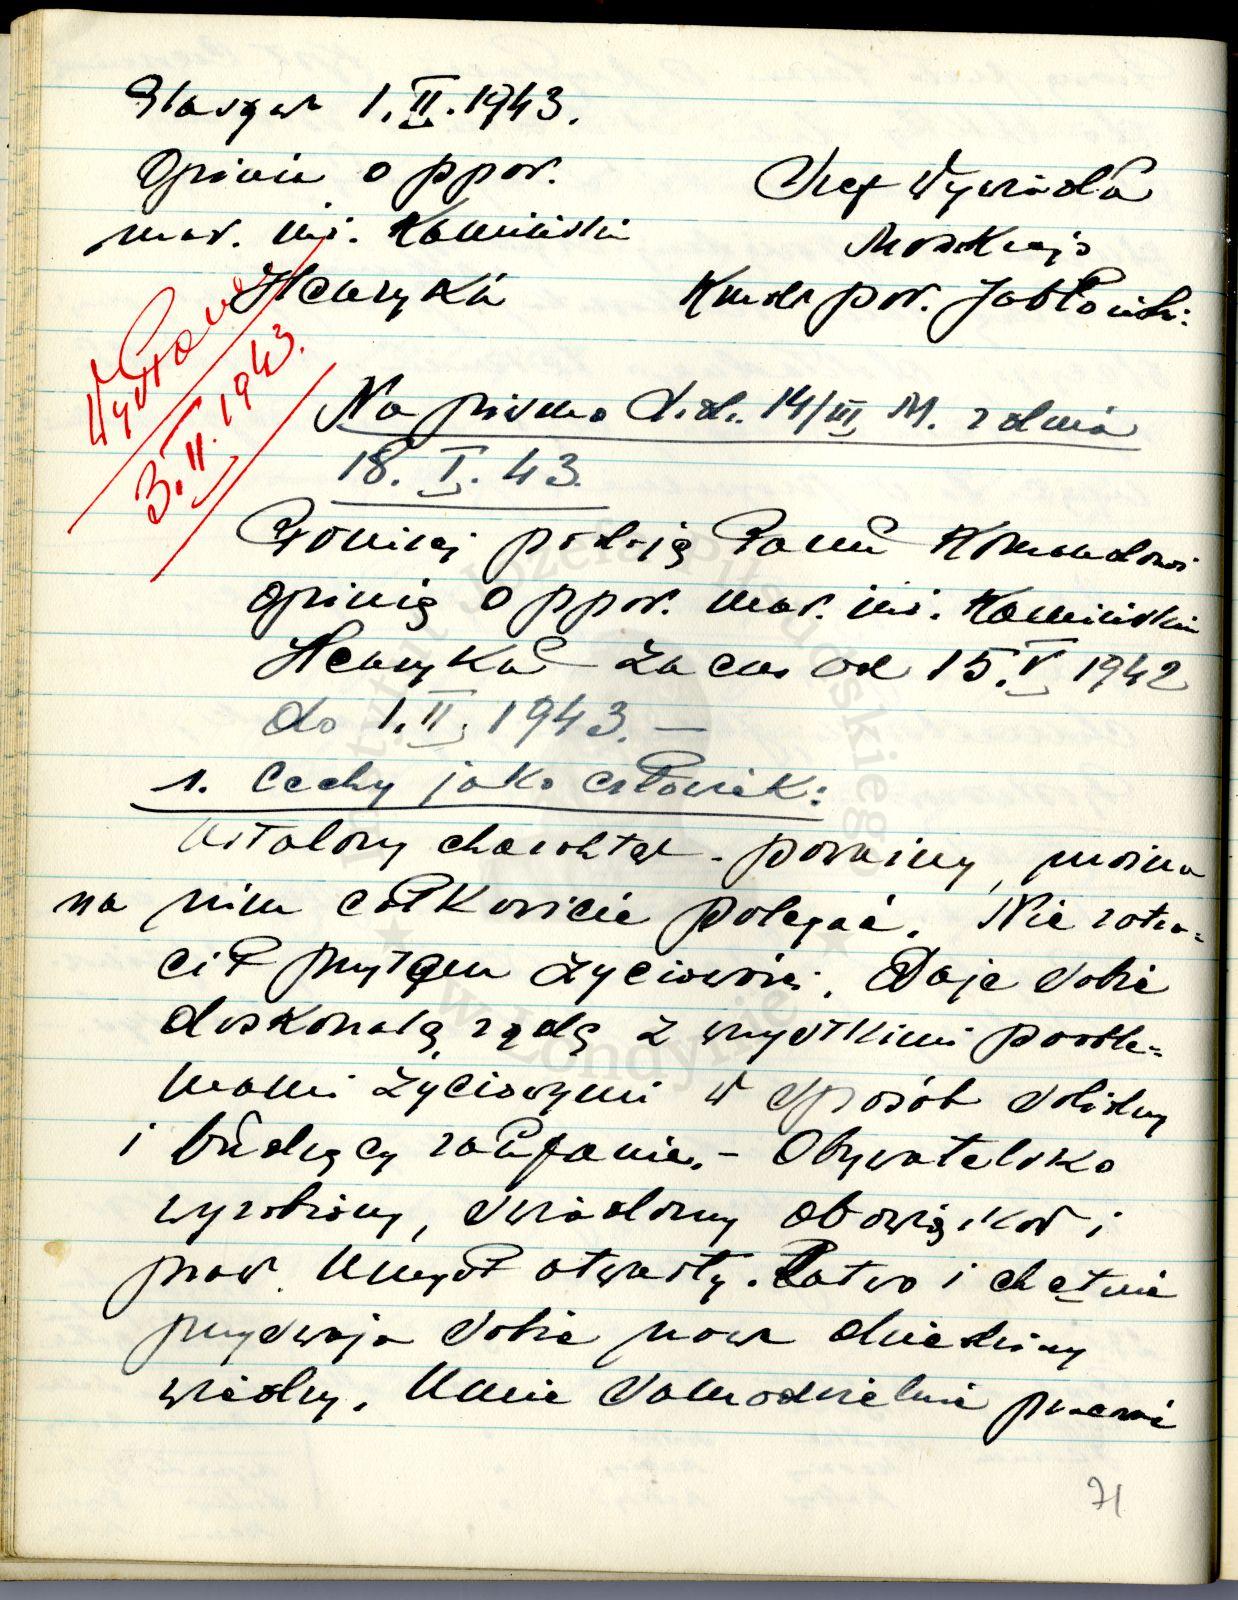 Glasgow 1.II.1943.
Opinia o ppor.
mar. inż. Kamiński
Henryka
Szef Wywiadu
Morskiego
Kmdr por. Jabłoński:
Wysłano
3.II.1943.
Na pismo L.dz. 14/III M. z dnia
18.I.43.
Poniżej podaję Panu Komandorowi
opinię o ppor. mar. inż. Kamiński
Henryku za czas od 15.V.1942
do 1.II.1943. –
1. Cechy jako człowiek:
Ustalony charakter – poważny, można
na nim całkowicie polegać. Nie zatra=
cił prężn życiowości. Daje sobie
doskonałą radę z wszystkimi proble=
mami życiowymi w sposób solidny
i budzący zaufanie. – Obywatelsko
wyrobiony, świadomy obowiązków i
praw. Umysł otwarty. Łatwo i chętnie
przyswaja sobie nowe dziedziny
wiedzy. Umie samodzielnie pracować
71
Instytut Józefa Piłsudskiego
w Londynie